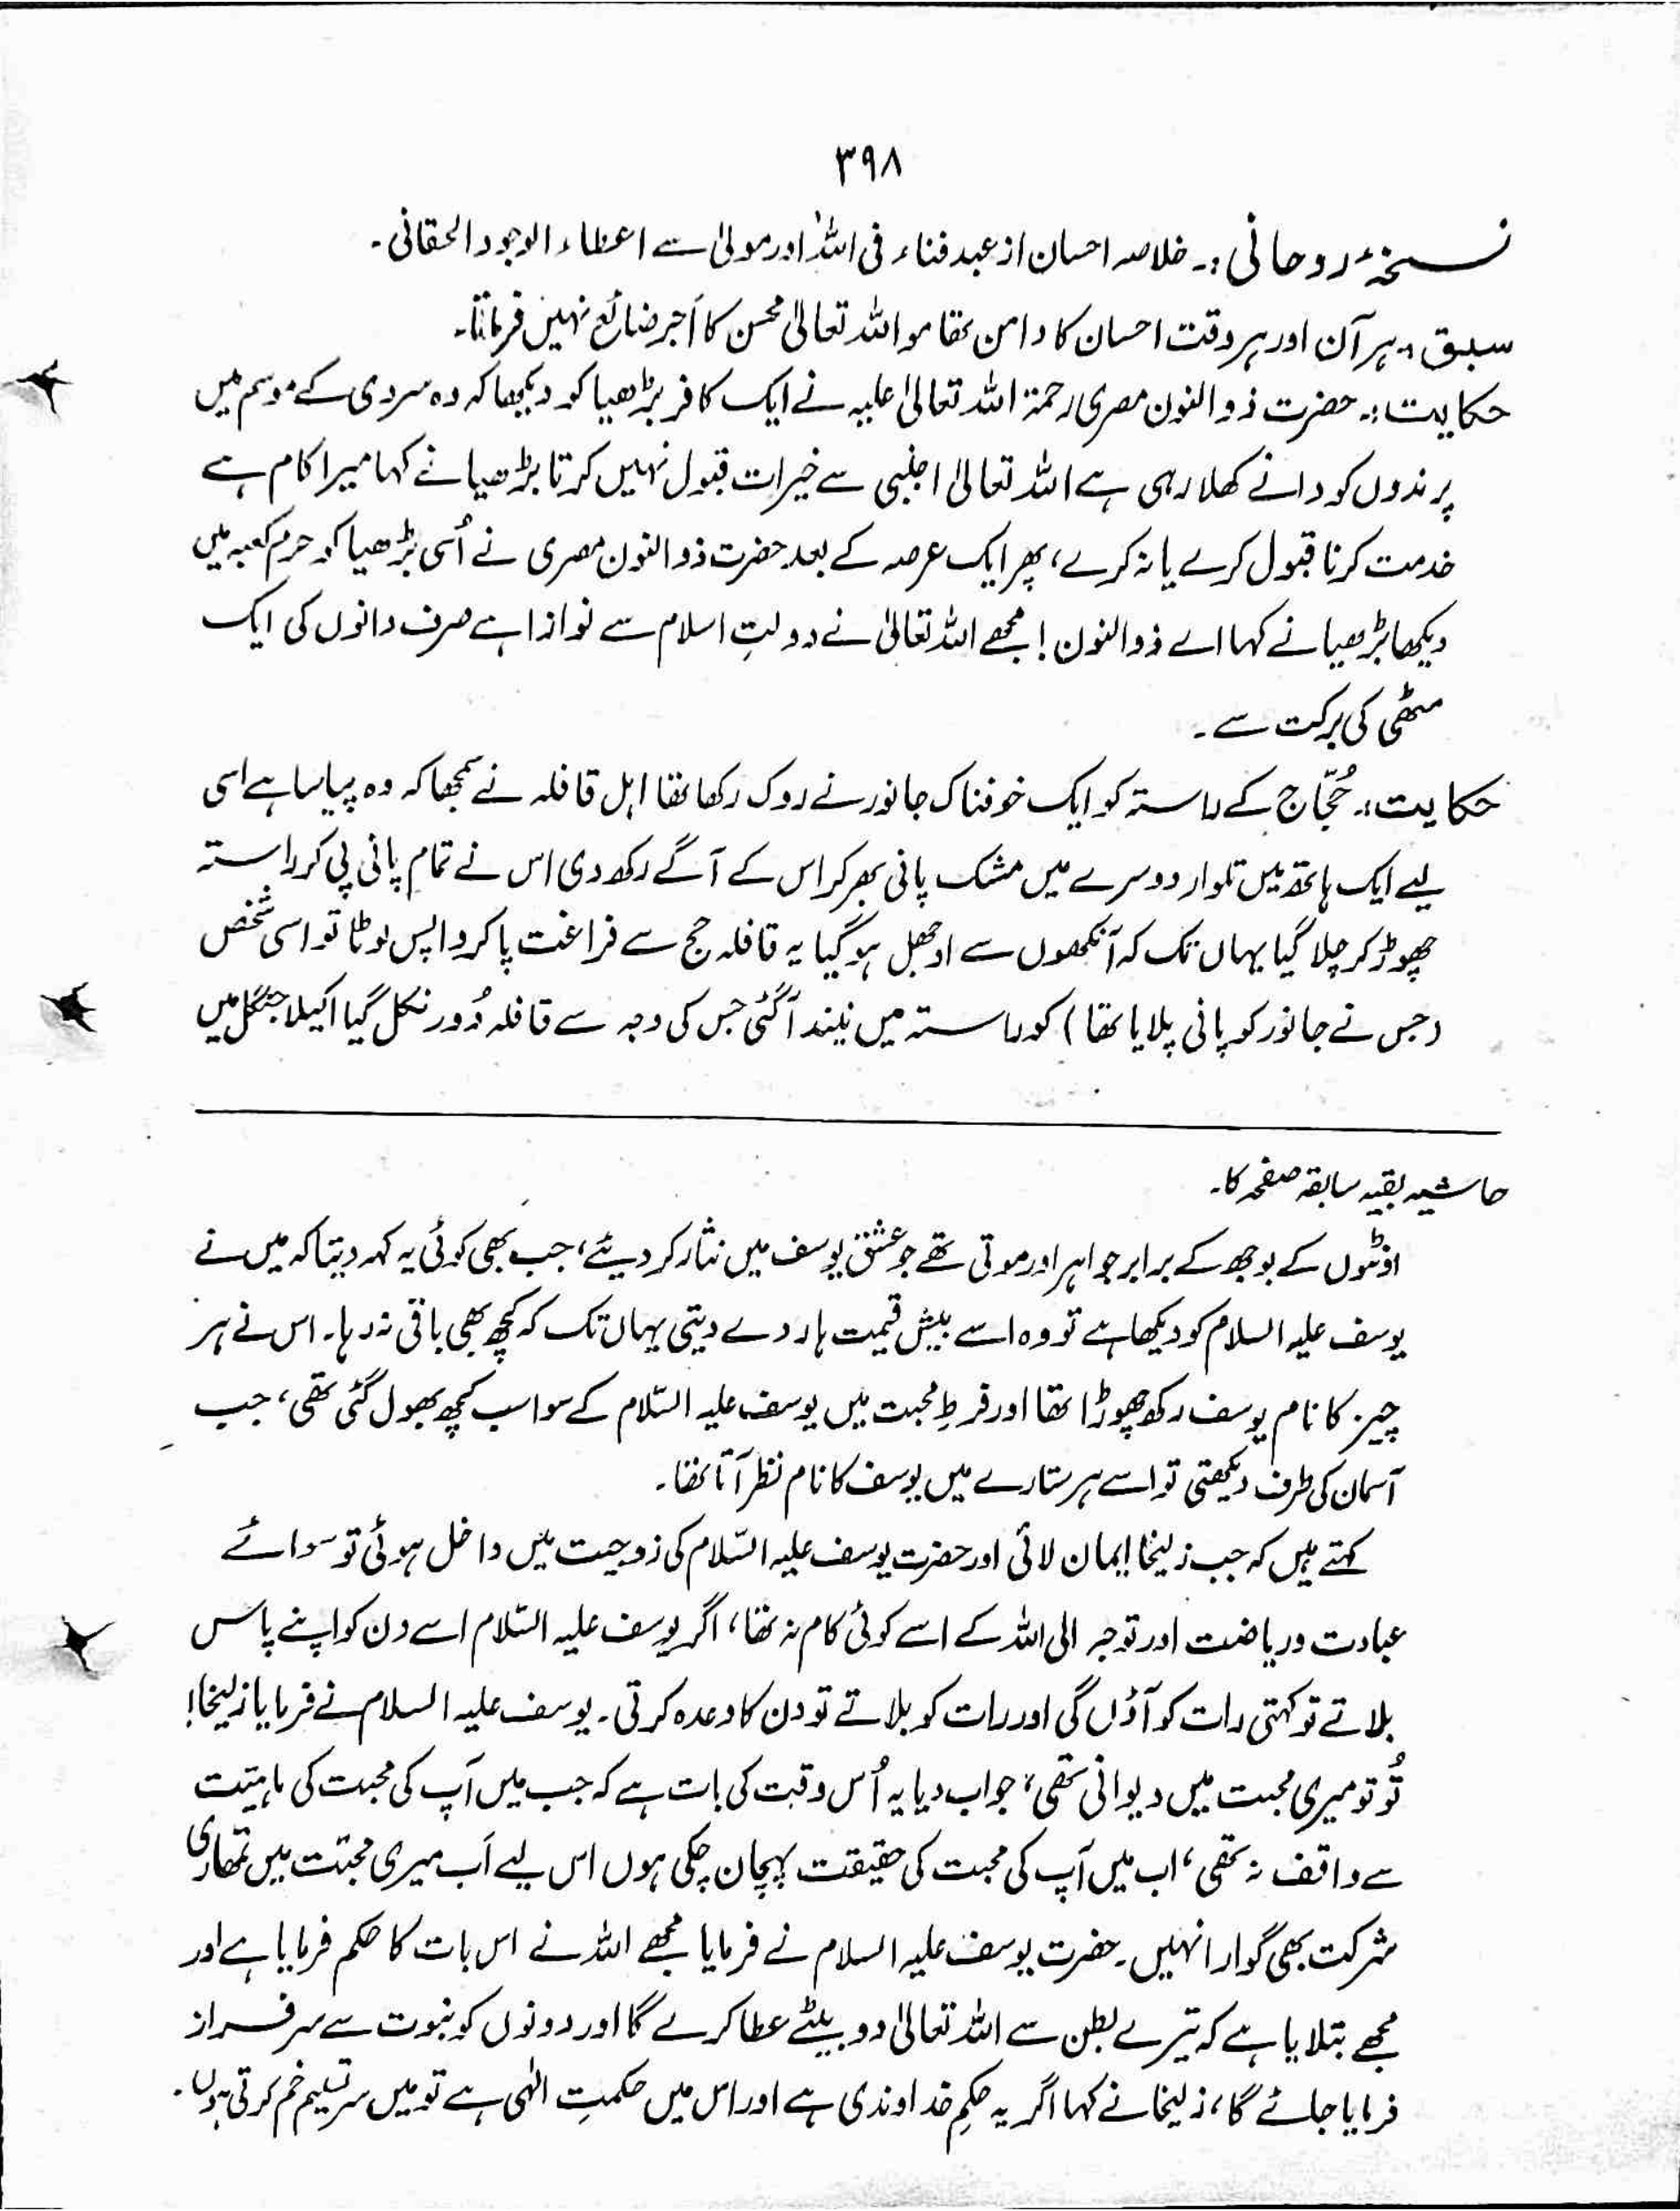 ۳۹۸
نسخۂ روحانی :۔ خلاصہ احسان از عبد فناء فی اللہ اور مولیٰ سے اعطاء الوجود الحقانی ۔
سبق :۔ ہر آن اور ہر وقت احسان کا دامن تھامو اللہ تعالیٰ محسن کا اَجر ضائع نہیں فرماتا۔
حکایت :۔ حضرت ذوالنون مصری رحمۃ اللہ تعالیٰ علیہ نے ایک کافر بڑھیا کو دیکھا کہ وہ سردی کے موسم میں
پرندوں کو دانے کھلا رہی ہے اللہ تعالیٰ اجنبی سے خیرات قبول نہیں کرتا بڑھیا نے کہا میرا کام ہے
خدمت کرنا قبول کرے یا نہ کرے، پھر ایک عرصہ کے بعد حضرت ذوالنون مصری نے اُسی بڑھیا کو حرم کعبہ میں
دیکھا بڑھیا نے کہا اے ذوالنون! مجھے اللہ تعالیٰ نے دولتِ اسلام سے نوازا ہے صرف دانوں کی ایک
مٹھی کی برکت سے ۔
حکایت :۔ حُجّاج کے راستہ کو ایک خوفناک جانور نے روک رکھا تھا اہل قافلہ نے سمجھا کہ وہ پیاسا ہے اسی
لیے ایک ہاتھ میں تلوار دوسرے میں مشک پانی بھر کر اس کے آگے رکھ دی اس نے تمام پانی پی کر راستہ
چھوڑ کر چلا گیا یہاں تک کہ آنکھوں سے اوجھل ہو گیا یہ قافلہ حج سے فراغت پا کر واپس لوٹا تو اسی شخص
(جس نے جانور کو پانی پلایا تھا) کو راستہ میں نیند آ گئی جس کی وجہ سے قافلہ دُور نکل گیا اکیلا جنگل میں
حاشیہ بقیہ سابقہ صفحہ کا۔
اونٹوں کے بوجھ کے برابر جواہر اور موتی تھے جو عشقِ یوسف میں نثار کر دیئے، جب بھی کوئی یہ کہہ دیتا کہ میں نے
یوسف علیہ السلام کو دیکھا ہے تو وہ اسے بیش قیمت ہار دے دیتی یہاں تک کہ کچھ بھی باقی نہ رہا۔ اس نے ہر
چیز کا نام یوسف رکھ چھوڑا تھا اور فرطِ محبت میں یوسف علیہ السّلام کے سوا سب کچھ بھول گئی تھی، جب
آسمان کی طرف دیکھتی تو اسے ہر ستارے میں یوسف کا نام نظر آتا تھا ۔
کہتے ہیں کہ جب زلیخا ایمان لائی اور حضرت یوسف علیہ السّلام کی زوجیت میں داخل ہوئی تو سوائے
عبادت و ریاضت اور توجہ الی اللہ کے اسے کوئی کام نہ تھا، اگر یوسف علیہ السّلام اسے دن کو اپنے پاس
بلاتے تو کہتی رات کو آؤں گی اور رات کو بلاتے تو دن کا وعدہ کرتی ۔ یوسف علیہ السلام نے فرمایا زلیخا!
تُو تو میری محبت میں دیوانی تھی، جواب دیا یہ اُس وقت کی بات ہے کہ جب میں آپ کی محبت کی ماہیّت
سے واقف نہ تھی، اب میں آپ کی محبت کی حقیقت پہچان چکی ہوں اس لیے اَب میری محبّت میں تمھاری
شرکت بھی گوارا نہیں ۔ حضرت یوسف علیہ السلام نے فرمایا مجھے اللہ نے اس بات کا حکم فرمایا ہے اور
مجھے بتلایا ہے کہ تیرے بطن سے اللہ تعالیٰ دو بیٹے عطا کرے گا اور دونوں کو نبوت سے سرفراز
فرمایا جائے گا، زلیخا نے کہا اگر یہ حکمِ خداوندی ہے اور اس میں حکمتِ الٰہی ہے تو میں سر تسلیم خم کرتی ہوں ۔